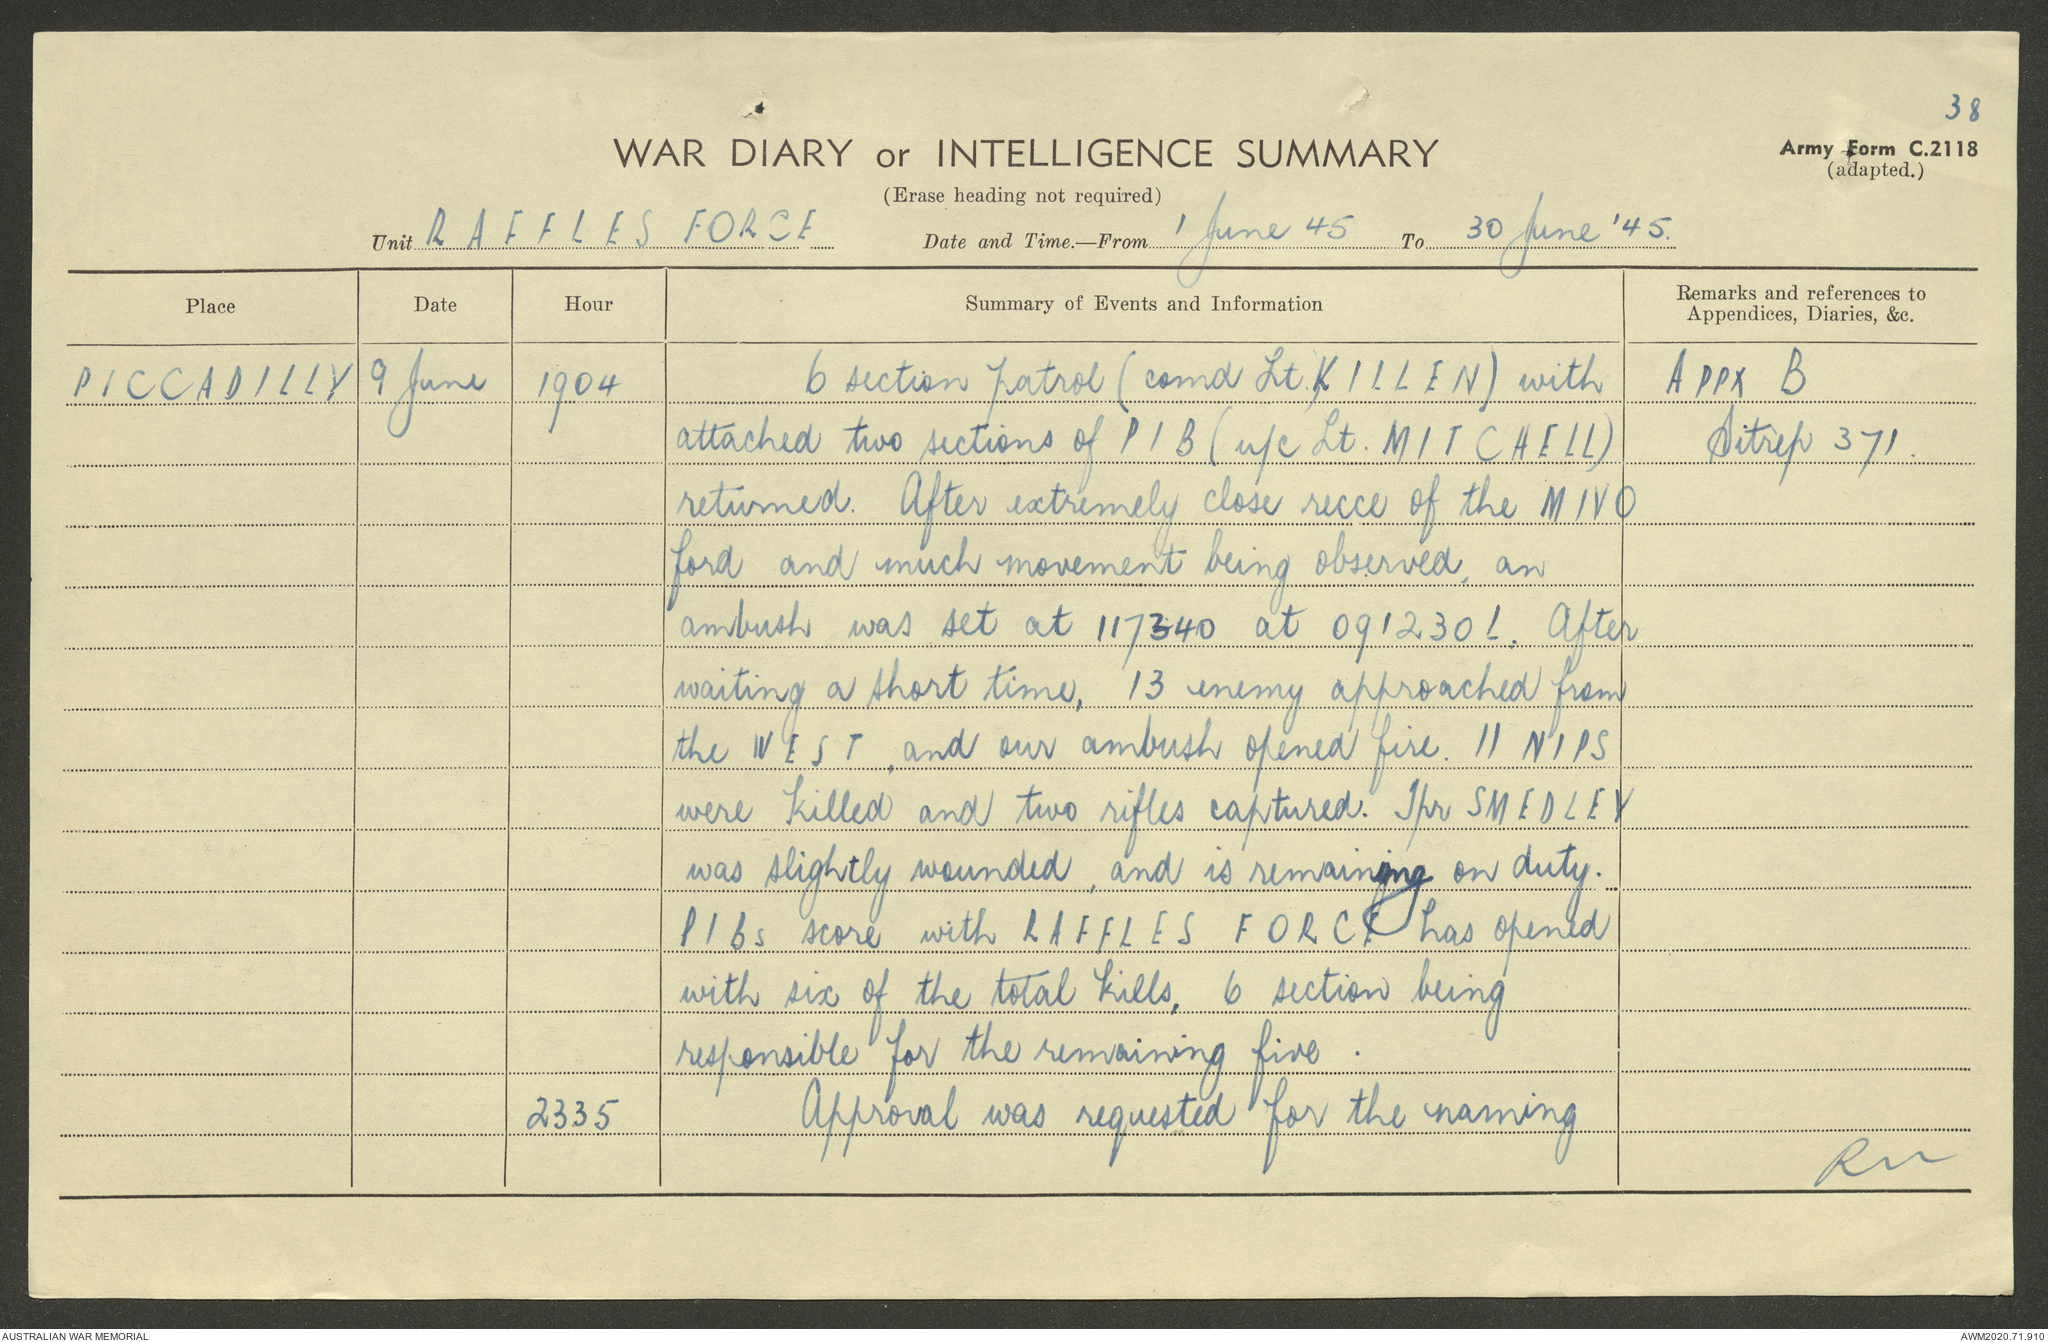 38
WAR DIARY or INTELLIGENCE SUMMARY
Army Form C.2118
(adapted.)
(Erase heading not required)
Unit RAFFLES FORCE Date and Time.—From 1 June 45 To 30 June '45.
Place Date Hour Summary of Events and Information Remarks and references to
Appendices, Diaries, &c.
PICCADILLY 9 June 1904 6 section patrol (comd Lt. KILLEN) with APPX B
attached two sections of PIB (u/c Lt. MITCHELL) Sitrep 371.
returned. After extremely close recce of the MIVO
ford and much movement being observed, an
ambush was set at 117340 at 091230L. After
waiting a short time, 13 enemy approached from
the WEST, and our ambush opened fire. 11 NIPS
were killed and two rifles captured. Tpr SMEDLEY
was slightly wounded, and is remaining on duty.
PIBs score with RAFFLES FORCE has opened
with six of the total kills, 6 section being
responsible for the remaining five.
2335 Approval was requested for the naming
AUSTRALIAN WAR MEMORIAL
AWM2020.71.910